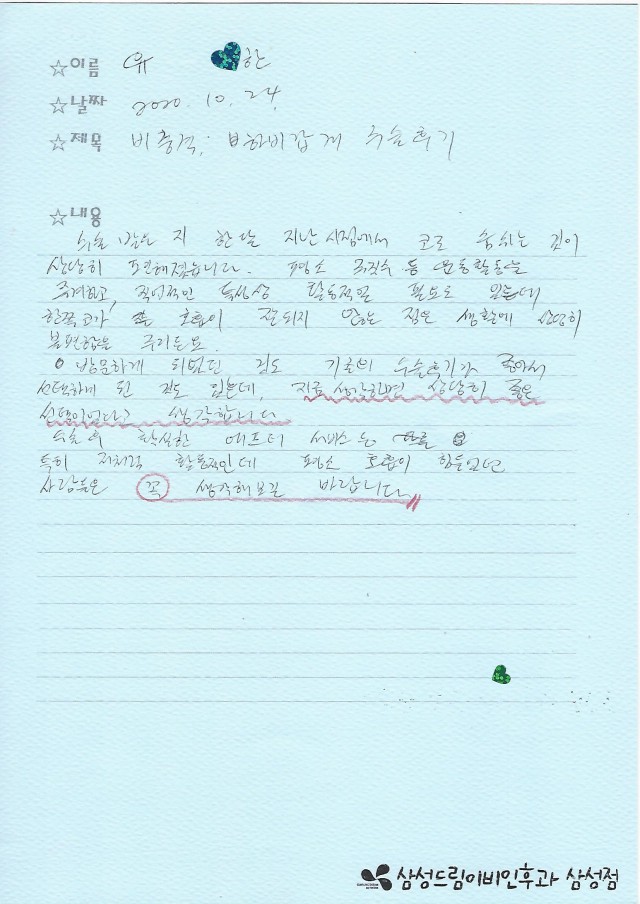 ☆이름 유 한
☆날짜 2020. 10. 24.
☆제목 비중격, 비하비갑개 수술후기
☆내용
수술 받은 지 한달 지난 시점에서 코로 숨쉬는 것이
상당히 편해졌습니다. 평소 국칫수 등 운동활동을
즐겨하고, 직업적인 특성상 활동적일 필요도 있는데
한쪽 코가 호흡이 잘되지 않는 점은 생활에 상당히
불편함을 주거든요.
방문하게 되었던 것도 기존의 수술후기가 좋아서
선택하게 된 것도 있는데, 지금 생각하면 상당히 좋은
선택이었다고 생각합니다
수술 후 확실한 애프터 서비스 등
특히 저처럼 활동적인데 평소 호흡이 힘들었던
사람들은 꼭 생각해보길 바랍니다
삼성드림이비인후과 삼성점